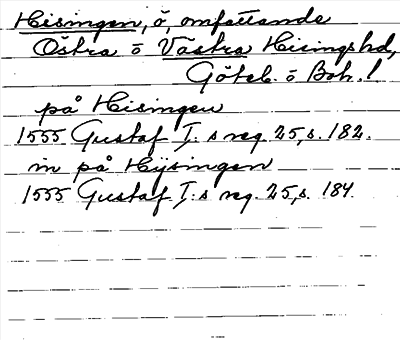 Hisingen, ö, omfattande
Östra o Västra Hisings hd,
Göteb. o Boh. l
på Hisingen
1555 Gustaf I:s reg. 25, s. 182.
in på Hijsingen
1555 Gustaf I:s reg. 25, s. 184.